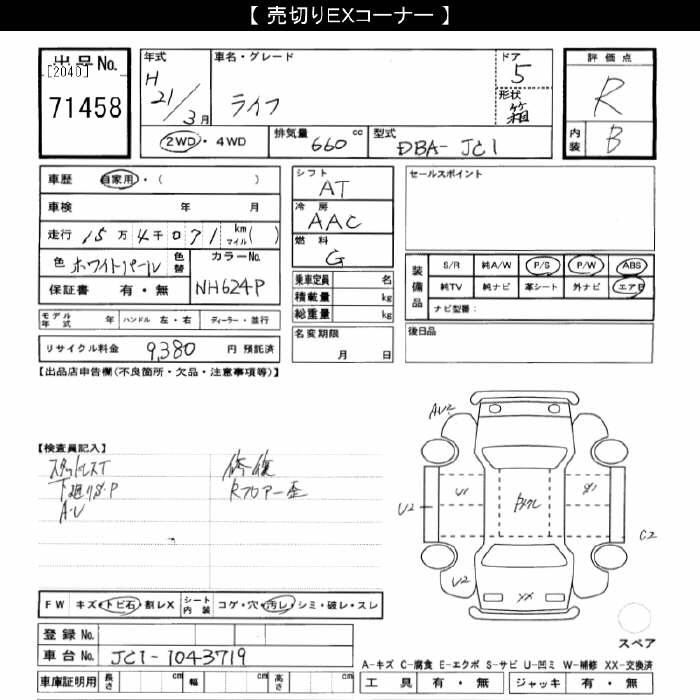 【 売切りEXコーナー 】
出品No.
[2040]
71458
年式
H 21/3月
車名・グレード
ライフ
ドア
5
形状
箱
評価点
R
内装 B
2WD・4WD
排気量 660 cc
型式 DBA-JC1
車歴 自家用・( )
車検 年 月
走行 15万4千071 km マイル( )
色 ホワイトパール 色替
カラーNo. NH624P
保証書 有・無
シフト
AT
冷房
AAC
燃料
G
セールスポイント
乗車定員 名
積載量 kg
総重量 kg
装備品
S/R 純A/W P/S P/W ABS
純TV 純ナビ 革シート 外ナビ エアB
ナビ型番:
モデル年式 年 ハンドル 左・右 ディーラー・並行
リサイクル料金 9,380 円 預託済
名変期限
月 日
後日品
【出品店申告欄(不良箇所・欠品・注意事項等)】
【検査員記入】
スタッドレスT
下廻りS・P
A・U
修復
Rフロアー歪
AU2
U2
U1
S1
C2
U2
XX
スペア
FW キズ・トビ石・割レX シート内装 コゲ・穴・汚レ・シミ・破レ・スレ
登録No.
車台No. JC1-1043719
車庫証明用 長さ cm 幅 cm 高さ cm
A-キズ C-腐食 E-エクボ S-サビ U-凹ミ W-補修 XX-交換済
工具 有・無 ジャッキ 有・無